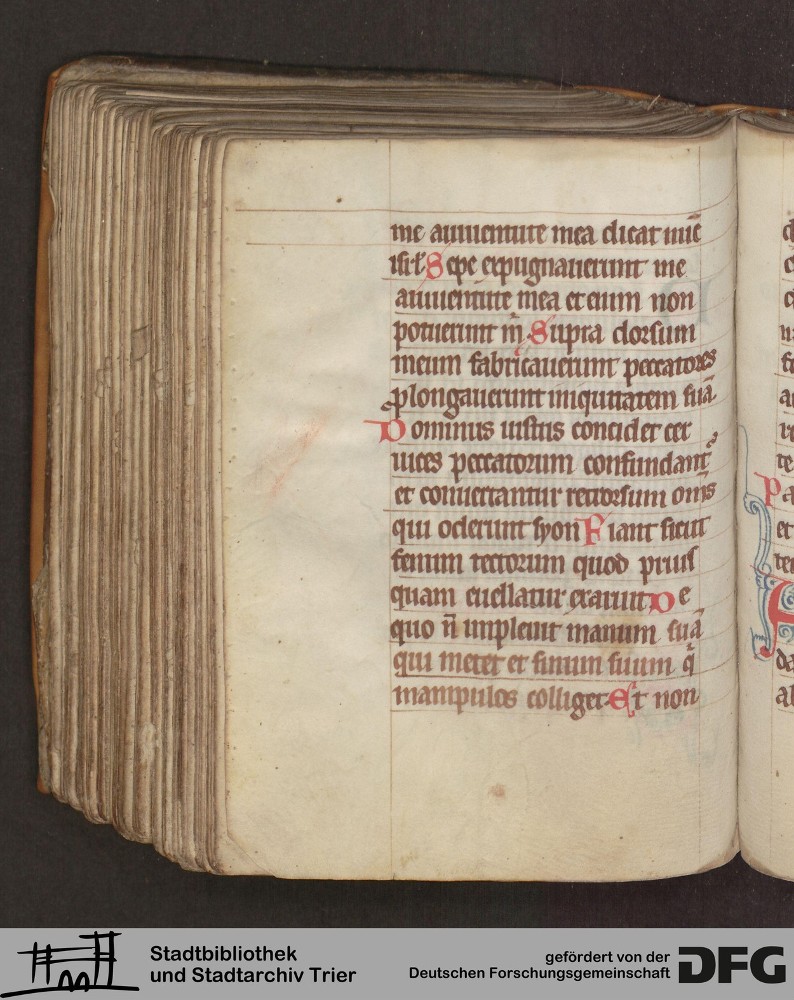 me a iuuentute mea dicat nūc
isr̄l Sepe expugnauerunt me
a iuuentute mea et enim non
potuerunt m̄ Supra dorsum
meum fabricauerunt peccatores
ꝓlongauerunt iniquitatem suā
Dominus iustus concidet cer
uices peccatorum confundantᷣ
et conuertantur retrorsum om̄s
qui oderunt syon Fiant sicut
fenum tectorum quod prius
quam euellatur exaruit De
quo n̄ impleuit manum suā
qui metet et sinum suum q̄
manipulos colliget Et non
Stadtbibliothek
und Stadtarchiv Trier
gefördert von der
Deutschen Forschungsgemeinschaft
DFG